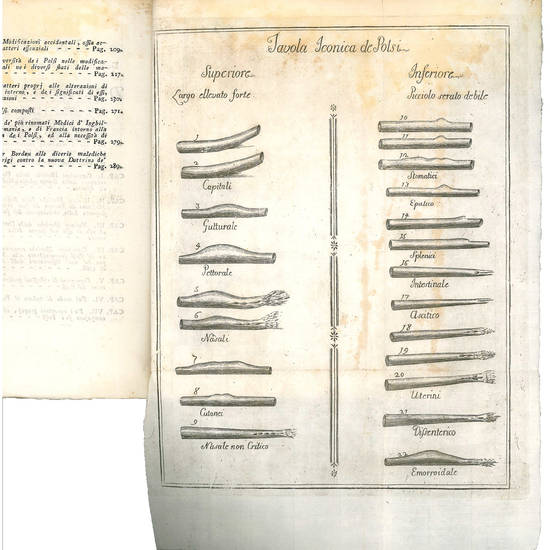 Modificazioni accidentali, ossia ac-
atteri essenziali - - Pag. 209.
versità de i Polsi nelle modifica-
ali ne i diversi stati delle ma-
- - - - - - Pag. 217.
atteri proprj alle alterazioni di
interno, e de i significati di essi,
- - - - - - Pag. 270.
si composti - - - Pag. 271.
de' più rinomati Medici d' Inghil-
mania, e di Francia intorno alla
de i Polsi, ed alla necessità di
- - - - - - Pag. 279.
r Bordeu alle diverse maledicenze
rigi contro la nuova Dottrina de'
- - - - - - Pag. 289.
Tavola Iconica de Polsi
Superiore
Largo ellevato forte
1
2
Capitali
3
Gutturale
4
Pettorale
5
6
Nasali
7
8
Cutanei
9
Nasale non Critico
Inferiore
Picciolo serato debile
10
11
12
Stomatici
13
Epatico
14
15
Splenici
16
Intestinale
17
Ascitico
18
19
20
Uterini
21
Dissenterico
22
Emorroidale